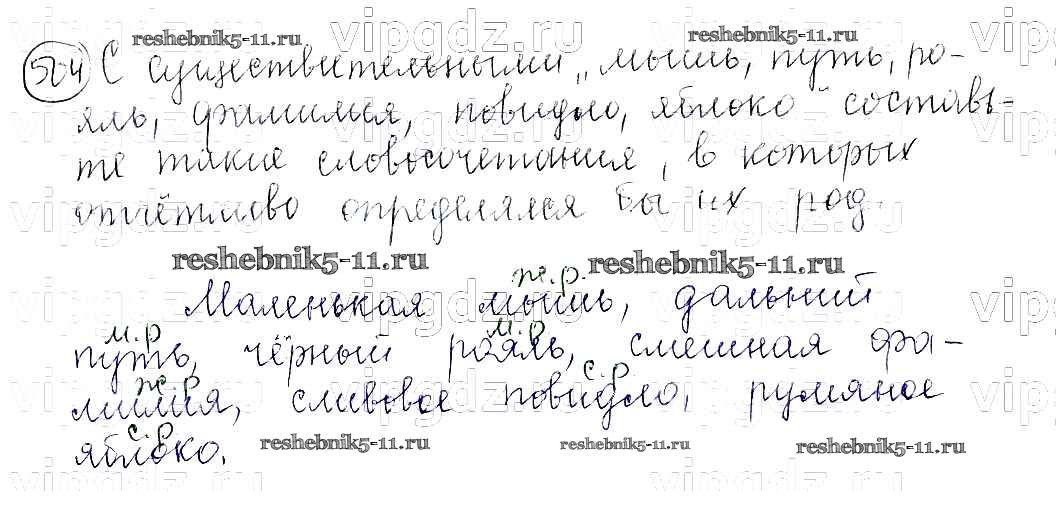 vipgdz.ru vipgdz.ru vipgdz.ru
reshebnik5-11.ru reshebnik5-11.ru
504 С существительными „мышь, путь, ро-
яль, фамилия, повидло, яблоко" составь-
те такие словосочетания, в которых
отчётливо определялся бы их род.
reshebnik5-11.ru reshebnik5-11.ru
ж.р.
Маленькая мышь, дальний
м.р м.р
путь, чёрный рояль, смешная фа-
ж.р с.р
милия, сливовое повидло, румяное
с.р
яблоко.
reshebnik5-11.ru reshebnik5-11.ru reshebnik5-11.ru